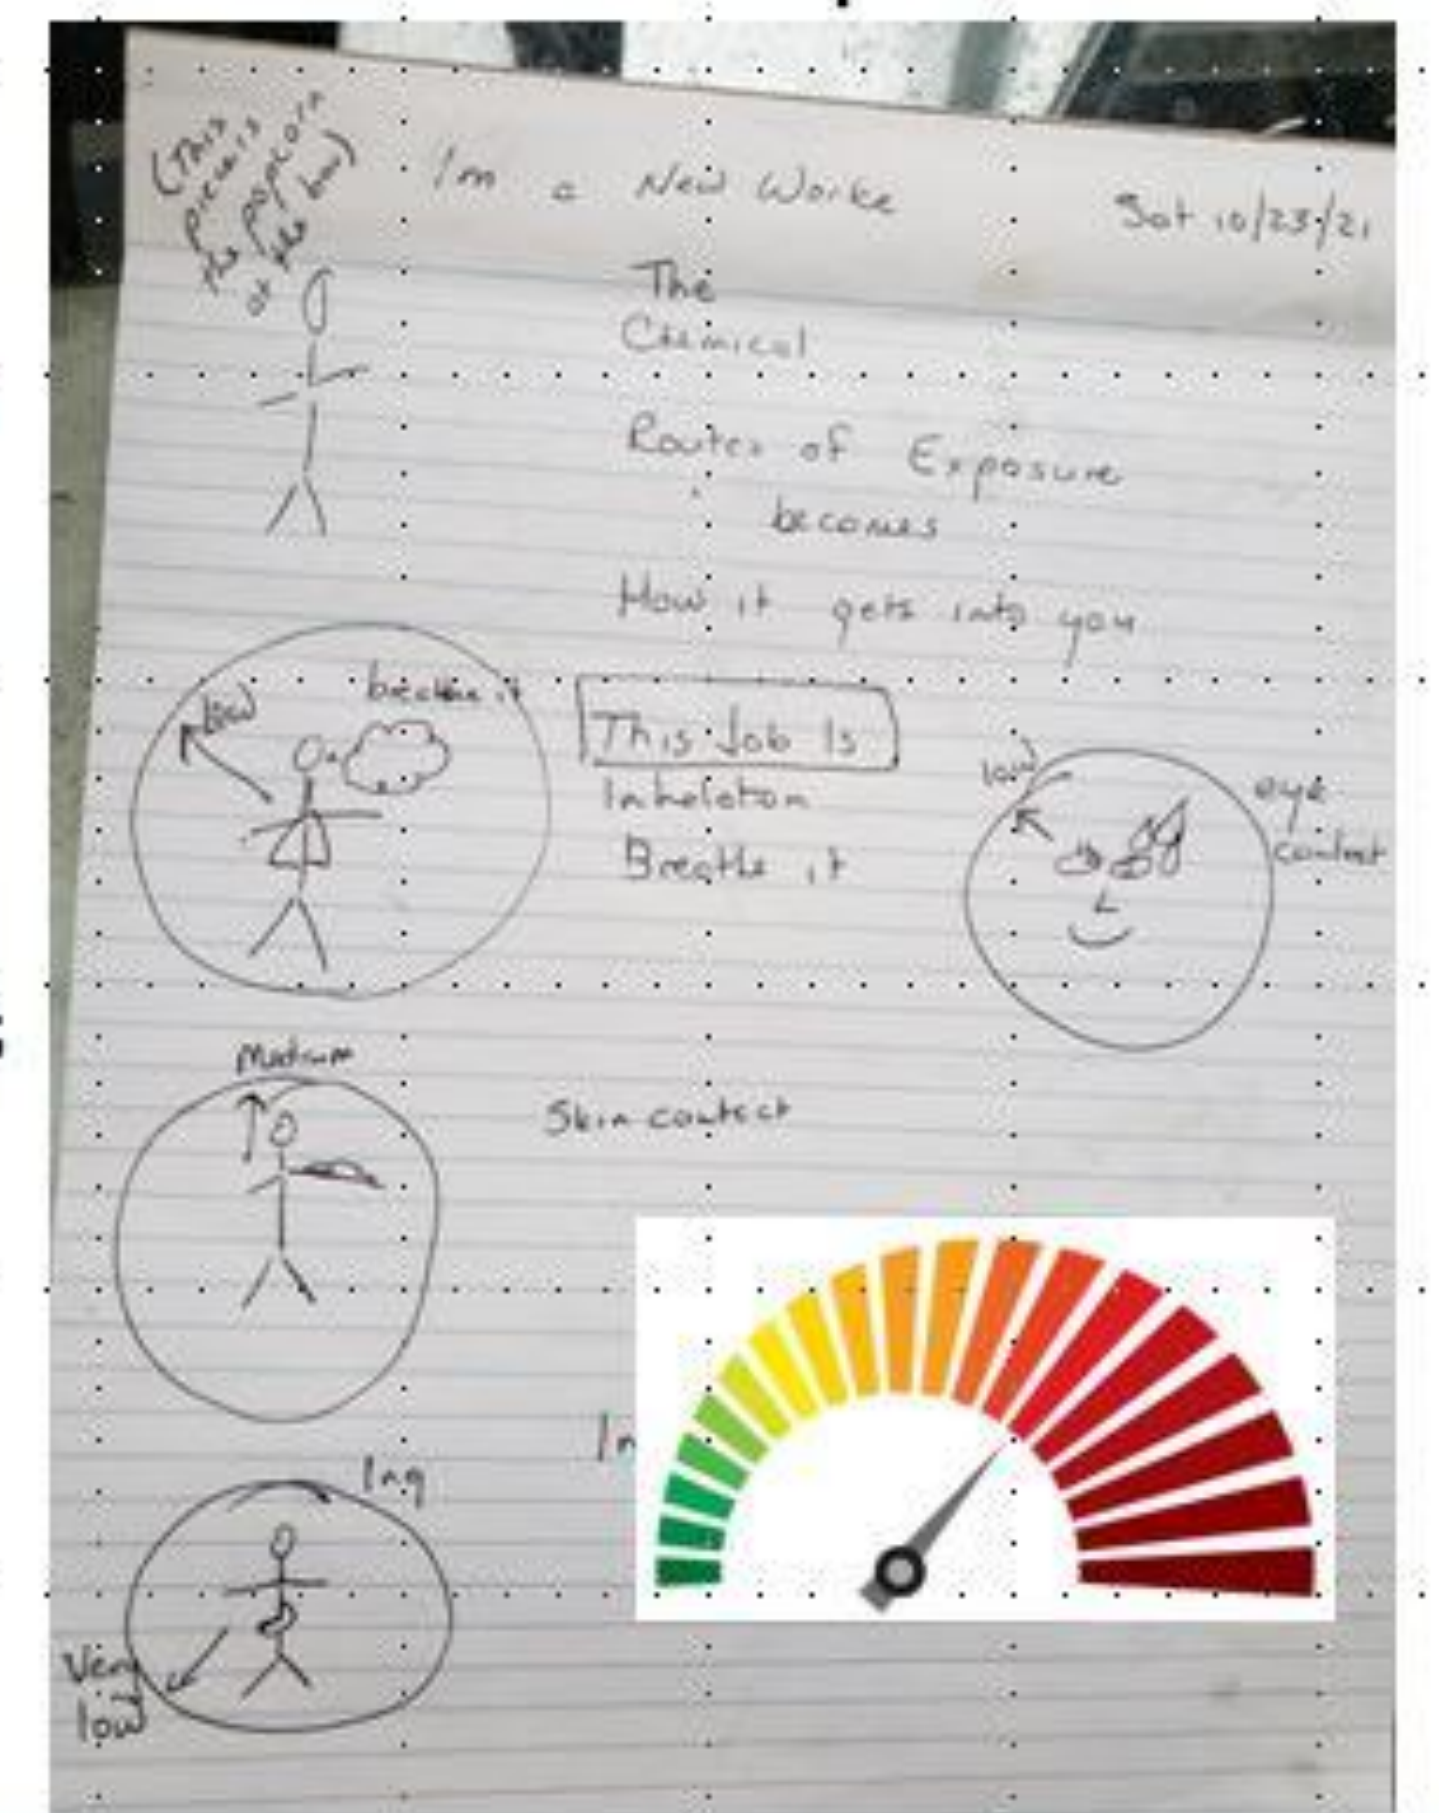 (This
piece is
the popcorn
at the bow)
I'm a New Worke
Sat 10/23/21
The
Chemical
Routes of Exposure
becomes
How it gets into you
low
breathe it
This Job Is
Inhelation
Breathe it
low
eye
contact
Medium
Skin contact
In
Ing
Very
low